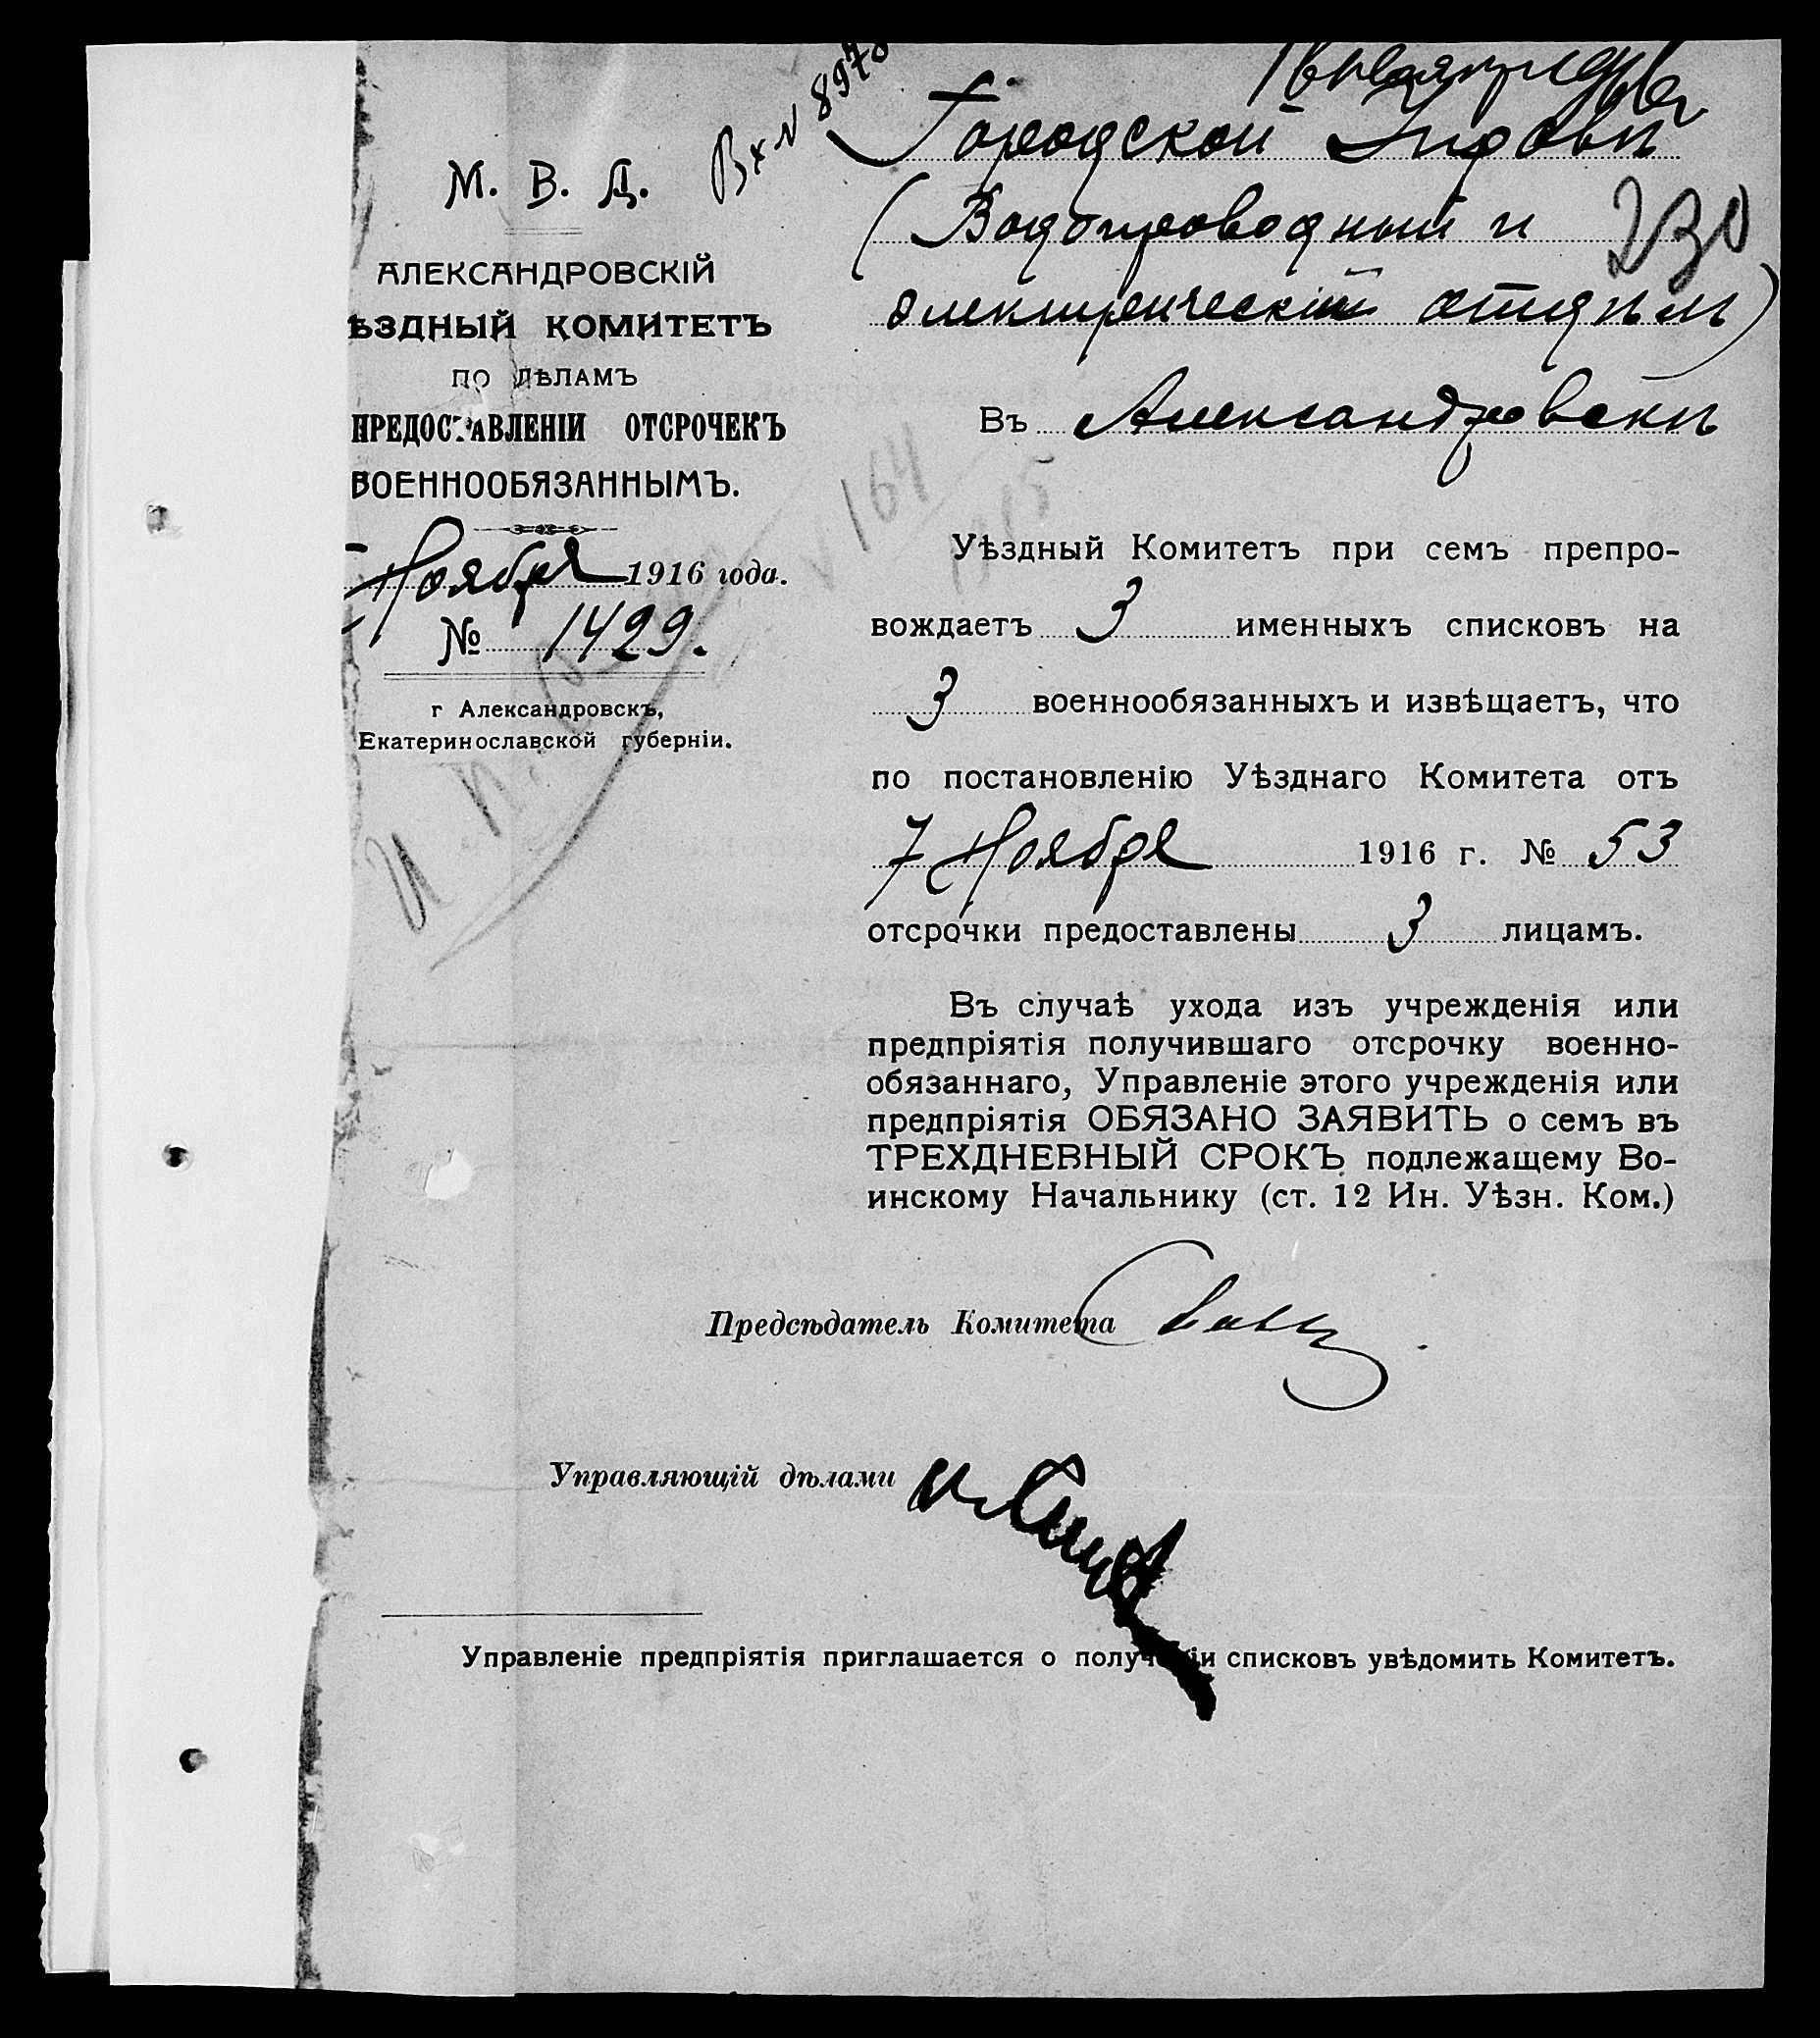 Вх № 8978
М. В. Д.
АЛЕКСАНДРОВСКІЙ
ѢЗДНЫЙ КОМИТЕТЪ
ПО ДѢЛАМЪ
ПРЕДОСТАВЛЕНІИ ОТСРОЧЕКЪ
ВОЕННООБЯЗАННЫМЪ.
Ноября 1916 года.
№ 1429.
г Александровскъ,
Екатеринославской губерніи.
Городской Управѣ
(Водопроводный и
электрическій отдѣлъ)
230
Въ Александровскѣ
№ 164
1915
Уѣздный Комитетъ при семъ препро-
вождаетъ 3 именныхъ списковъ на
3 военнообязанныхъ и извѣщаетъ, что
по постановленію Уѣзднаго Комитета отъ
7 Ноября 1916 г. № 53
отсрочки предоставлены 3 лицамъ.
Въ случаѣ ухода изъ учрежденія или
предпріятія получившаго отсрочку военно-
обязаннаго, Управленіе этого учрежденія или
предпріятія ОБЯЗАНО ЗАЯВИТЬ о семъ въ
ТРЕХДНЕВНЫЙ СРОКЪ подлежащему Во-
инскому Начальнику (ст. 12 Ин. Уѣзн. Ком.)
Предсѣдатель Комитета
Управляющій дѣлами
Управленіе предпріятія приглашается о получении списковъ увѣдомить Комитетъ.